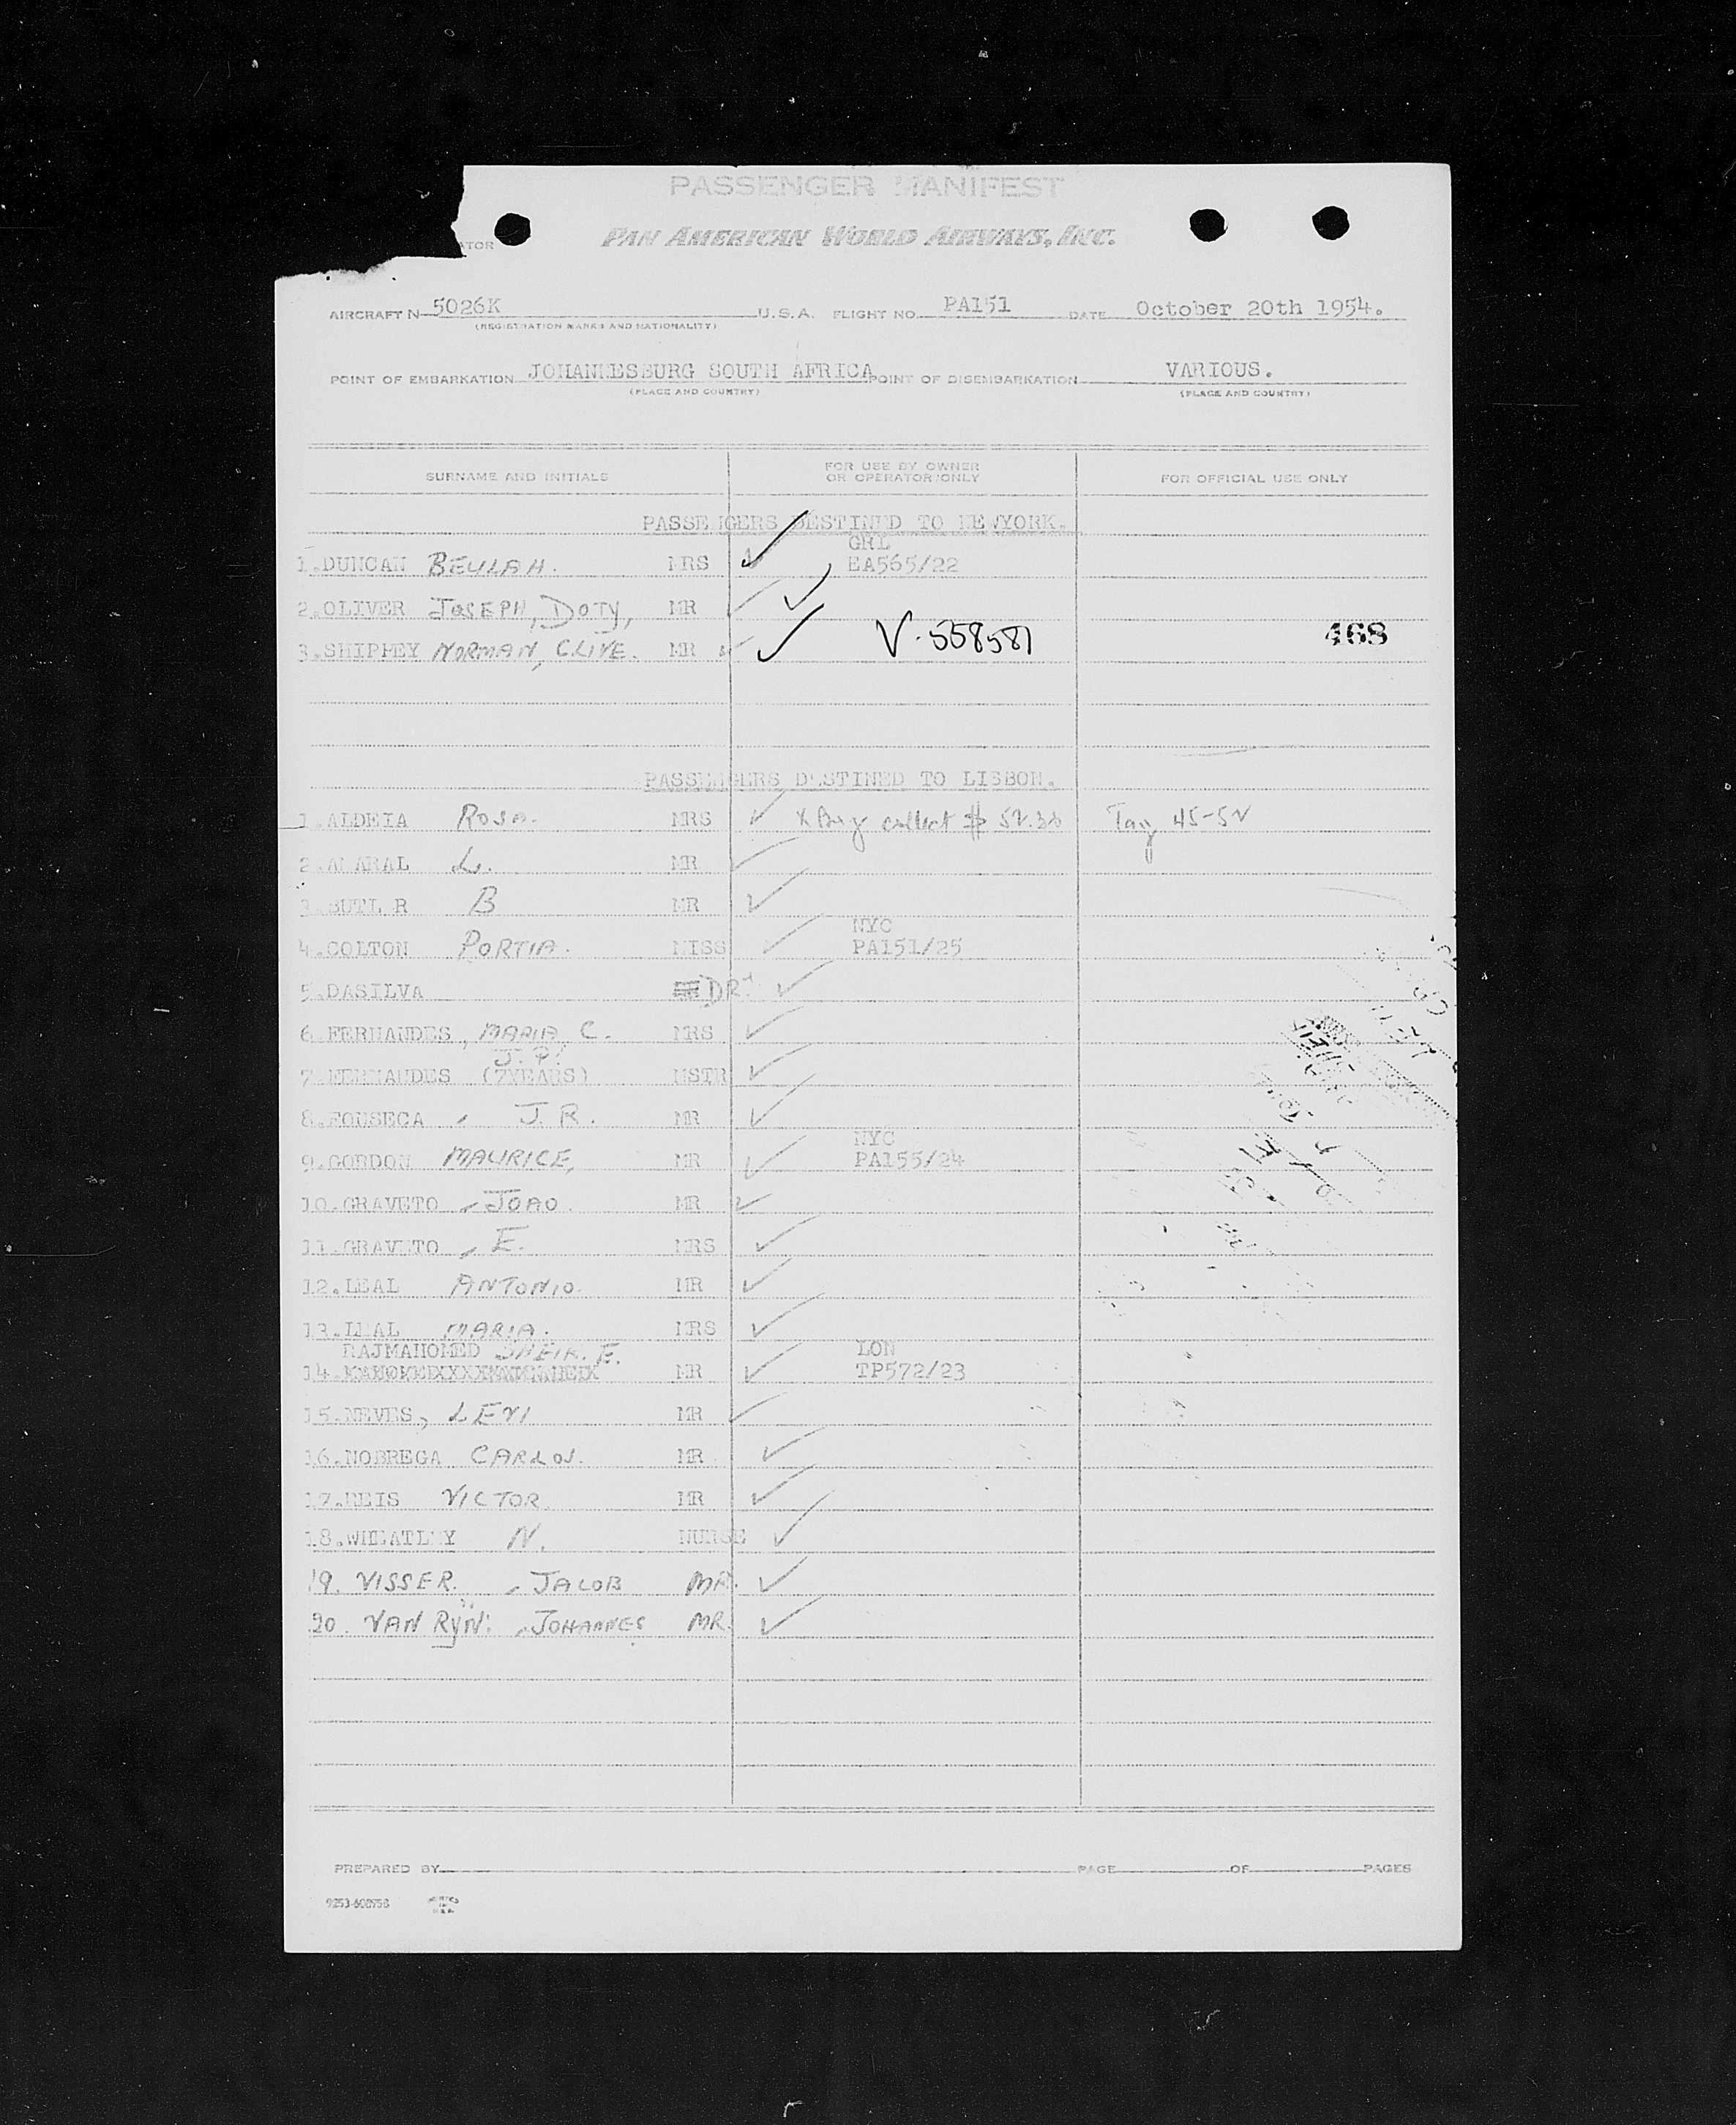 PASSENGER MANIFEST
PAN AMERICAN WORLD AIRWAYS, INC.
AIRCRAFT N 5026K U.S.A. FLIGHT NO. PA151 DATE October 20th 1954.
(REGISTRATION MARKS AND NATIONALITY)
POINT OF EMBARKATION JOHANNESBURG SOUTH AFRICA POINT OF DISEMBARKATION VARIOUS.
(PLACE AND COUNTRY) (PLACE AND COUNTRY)
SURNAME AND INITIALS FOR USE BY OWNER OR OPERATOR ONLY FOR OFFICIAL USE ONLY
PASSENGERS DESTINED TO NEWYORK.
GRL
1.DUNCAN BEULAH. MRS EA565/22
2.OLIVER JOSEPH, DOTY, MR
3.SHIPPEY NORMAN, CLIVE. MR V.558581 468
PASSENGERS DESTINED TO LISBON.
1.ALDEIA ROSA. MRS collect $ 52.30 Tag 45-52
2.AMARAL L. MR
3.BUTL R B MR
NYC
4.COLTON PORTIA. MISS PA151/25
5.DASILVA DR.
6.FERNANDES, MARIA C. MRS
J.P.
7.FERNANDES (7YEARS) MSTR
8.FONSECA, J.R. MR
NYC
9.GORDON MAURICE, MR PA155/24
10.GRAVETO, JOAO. MR
11.GRAVETO, E. MRS
12.LEAL ANTONIO. MR
13.LEAL MARIA. MRS
RAJMAHOMED E. LON
14. MR TP572/23
15.NEVES, LEVI MR
16.NOBREGA CARLOS. MR
17.REIS VICTOR. MR
18.WHEATLEY N. NURSE
19. VISSER. , JACOB MR.
20. VAN RYN. , JOHANNES MR.
PREPARED BY PAGE OF PAGES